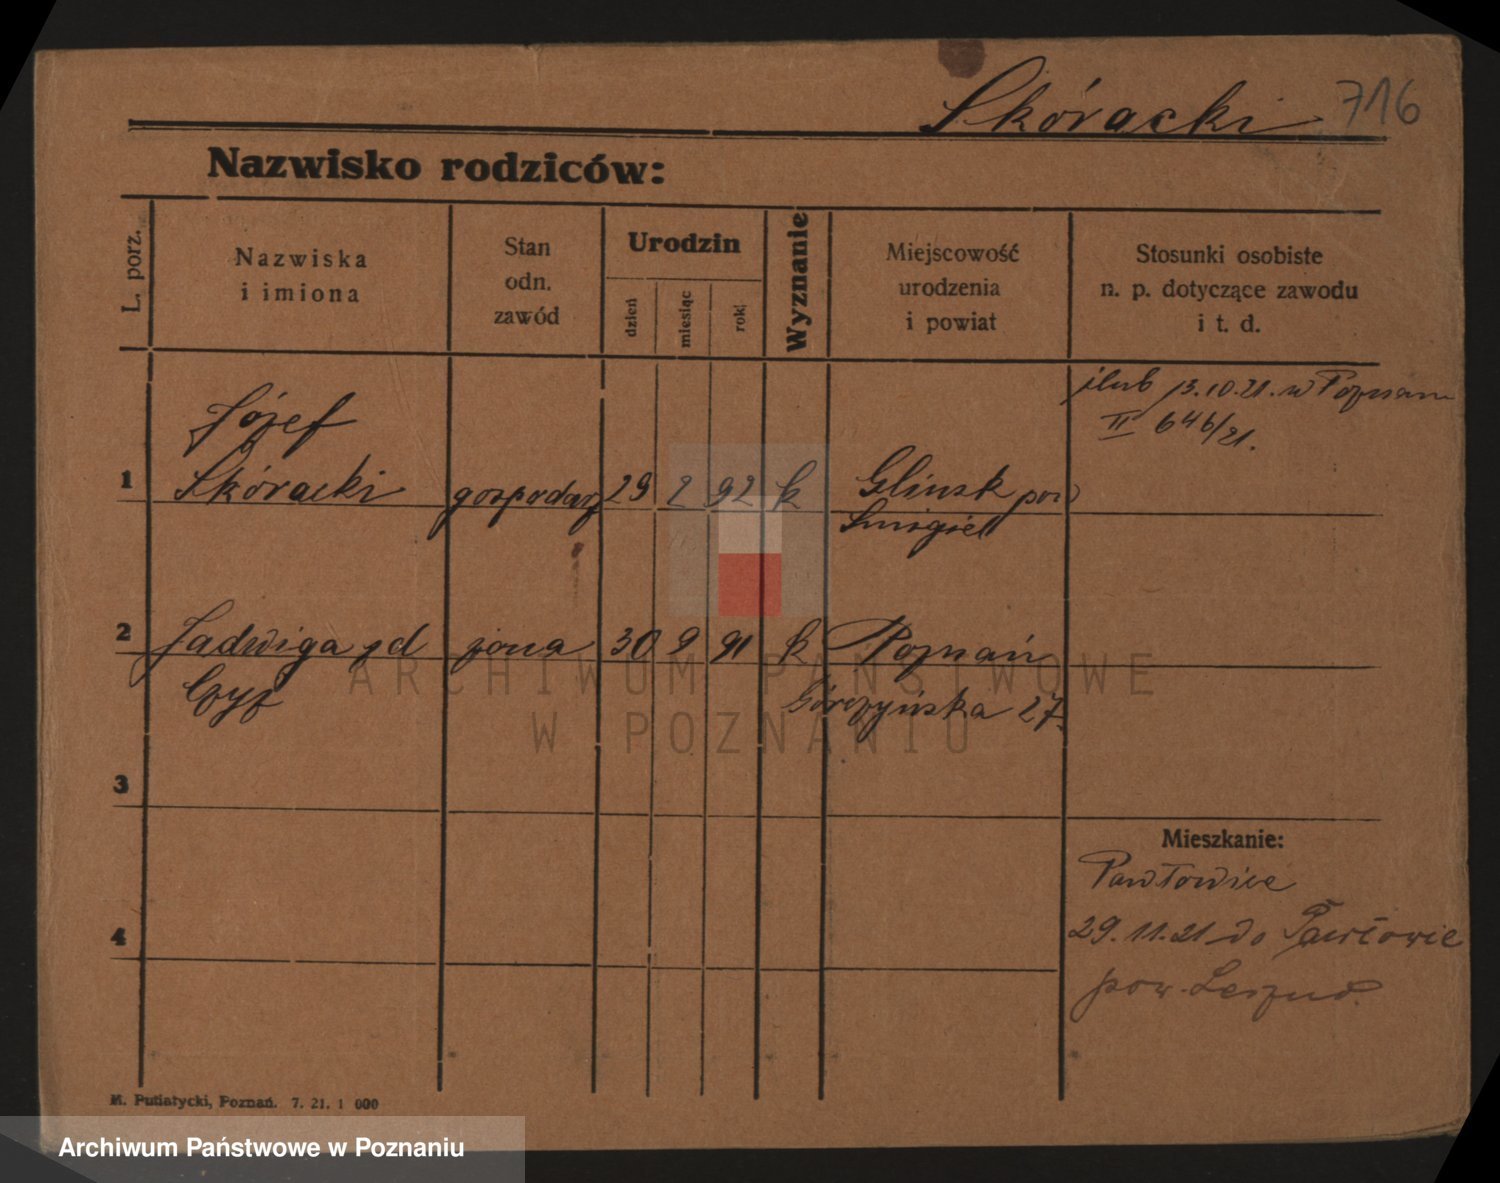 Skóracki 716
Nazwisko rodziców:
L. porz.
Nazwiska
i imiona
Stan
odn.
zawód
Urodzin
dzień
miesiąc
rok
Wyznanie
Miejscowość
urodzenia
i powiat
Stosunki osobiste
n. p. dotyczące zawodu
i t. d.
ślub 13.10.21. w Poznaniu
II 646/21.
Józef
1 Skóracki gospodarz 29 2 92 k Glinsk pow
Smigiel
2 Jadwiga zd żona 30 9 91 k Poznań
Czyż
Górczyńska 27.
3
Mieszkanie:
Pawłowice
4
29.11.21 do Pawłowic
pow. Leszno.
M. Putiatycki, Poznań. 7. 21. 1 000
ARCHIWUM PAŃSTWOWE
W POZNANIU
Archiwum Państwowe w Poznaniu